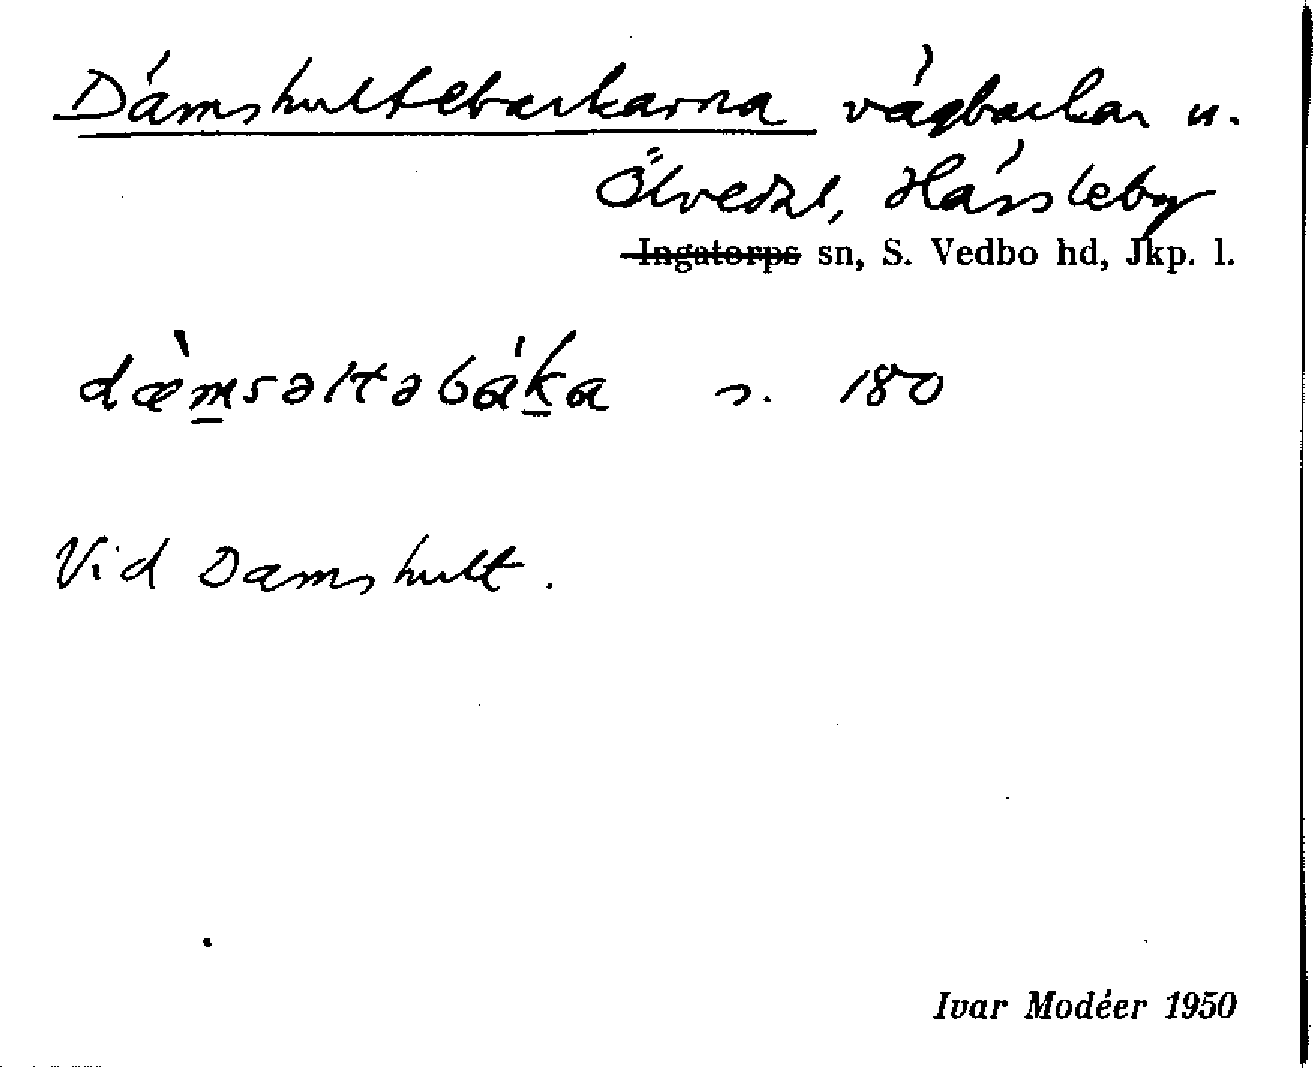 Dämshultebackarna vägbackar u.
Ölvedal, Hässleby
Ingatorps sn, S. Vedbo hd, Jkp. l.
dæ̀msəltəbáka s. 180
Vid Damshult.
Ivar Modéer 1950